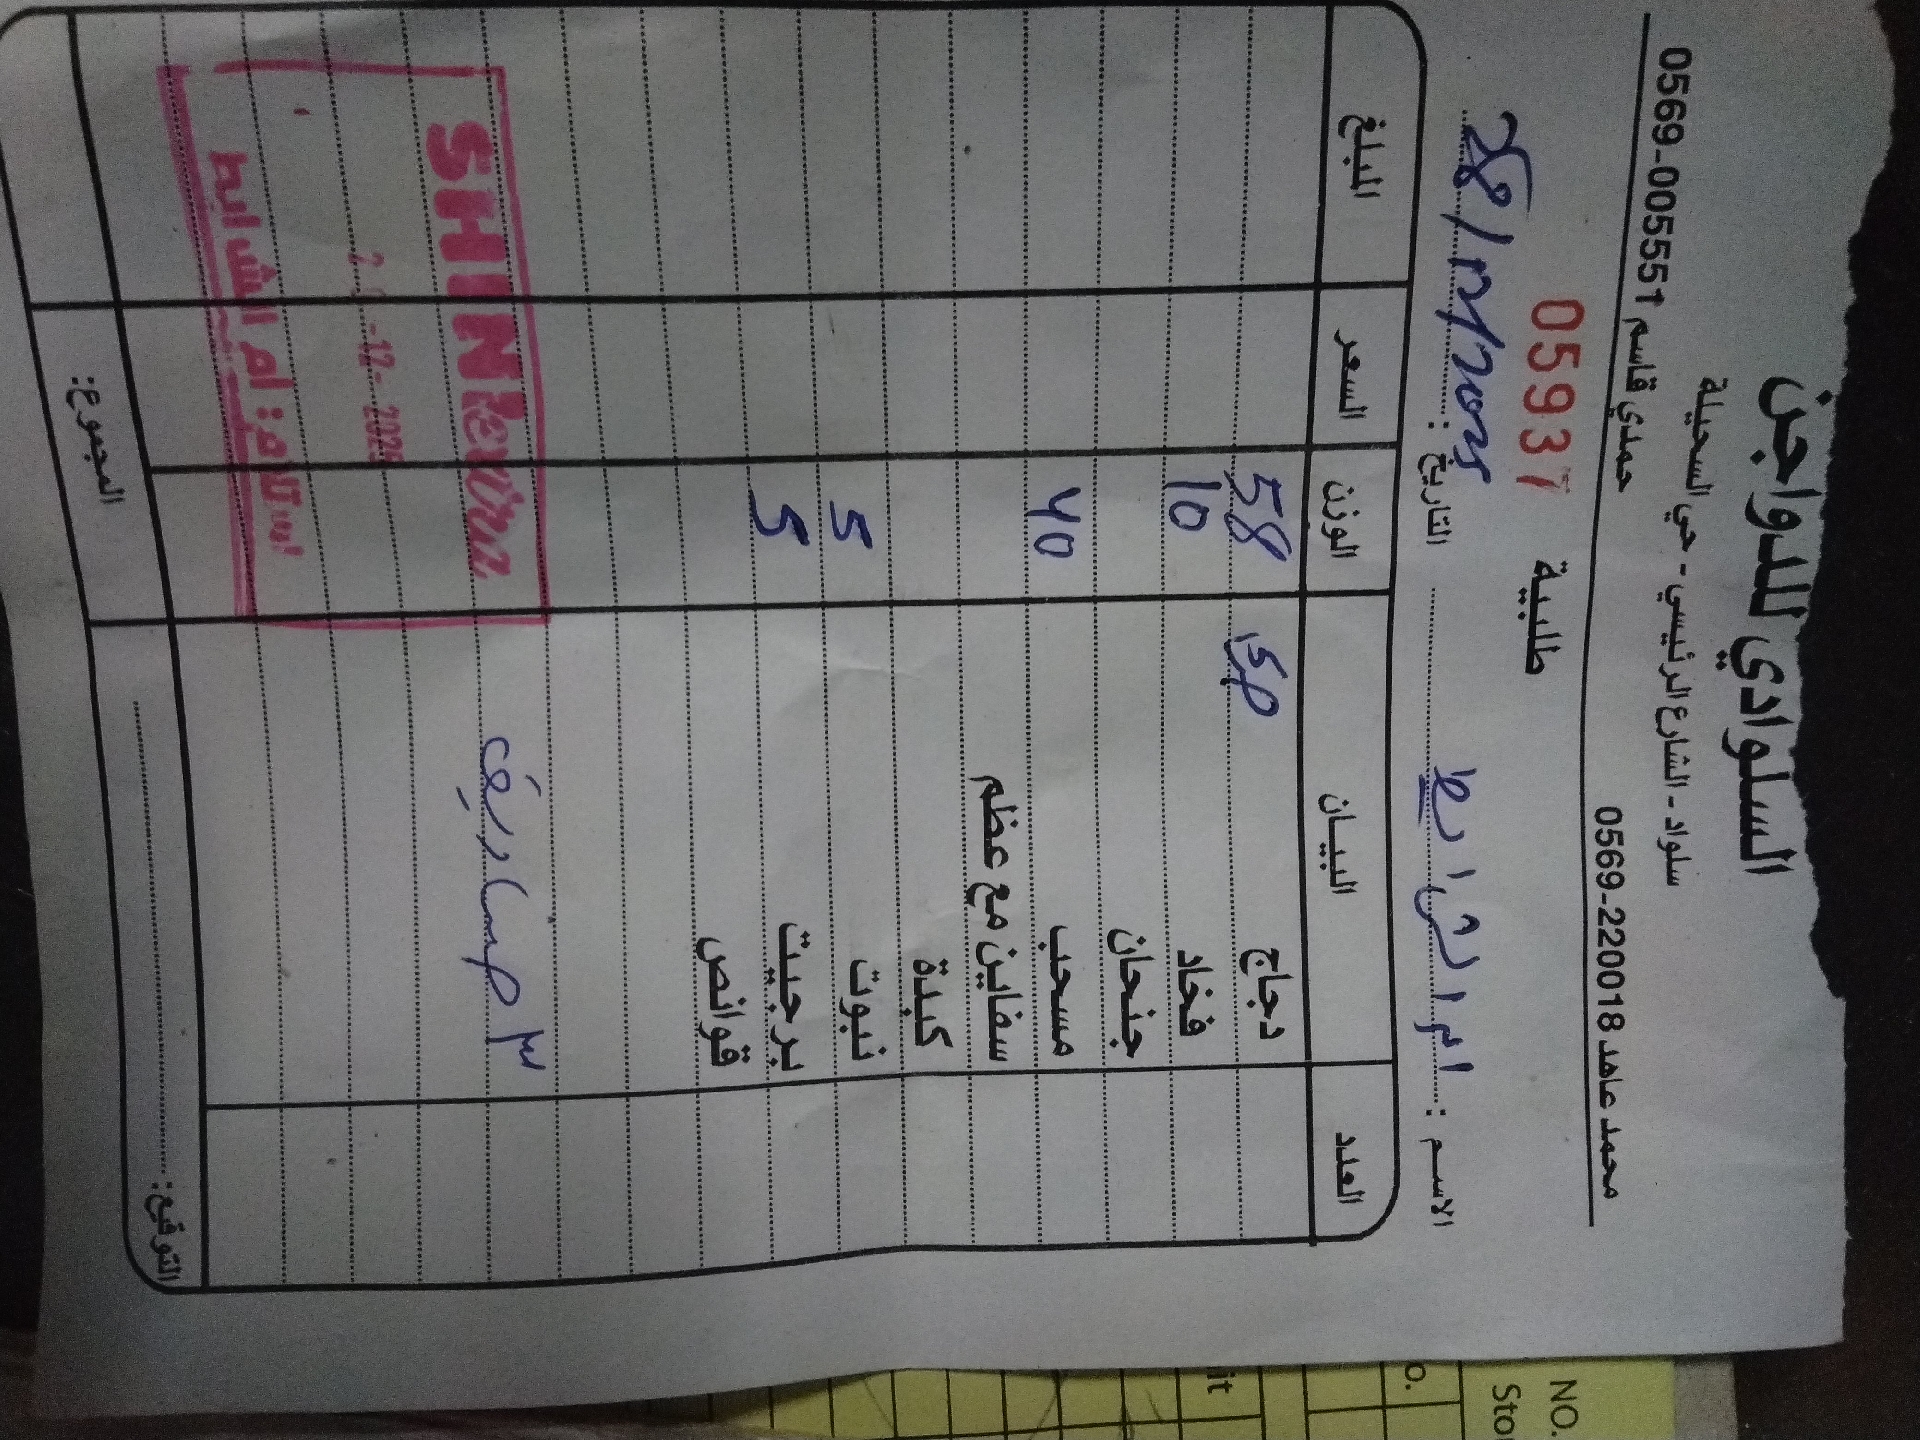 السلوادي للدواجن
سلواد - الشارع الرئيسي - حي السحيلة
محمد عاهد 0569-220018 حمدي قاسم 0569-005551
طلبية 05937
الاسم : ام الشرايط التاريخ : 28/12/2025
العدد البيـــان الوزن السعر المبلغ
دجاج 58
فخاد 10
جنحان
مسحب 40
سفاين مع عظم
كبدة
نبوت 5
برجيت 5
قوانص
SHINI
-12-2025
استلام: ام الشرايط
المجموع:
التوقيع:
NO.
Sto
o.
it